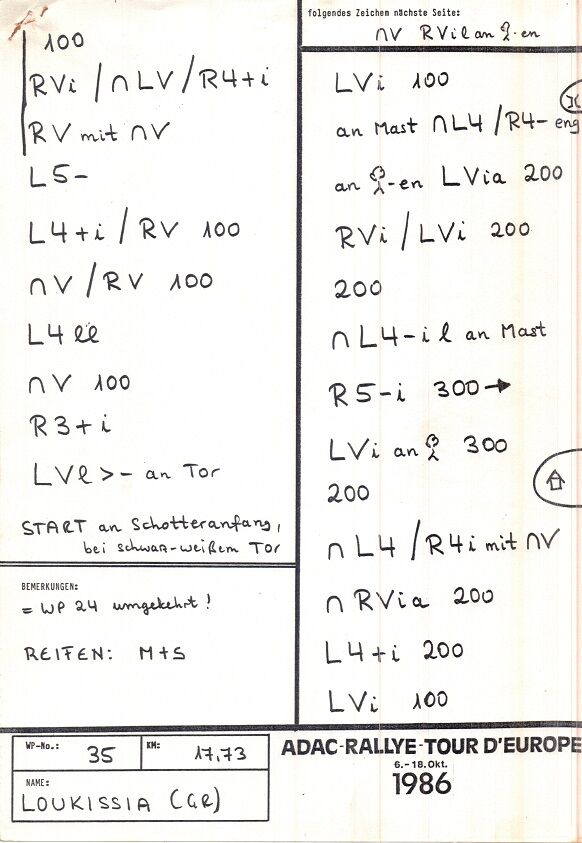 100
RVi / ∩ LV / R4+i
RV mit ∩V
L5-
L4+i / RV 100
∩V / RV 100
L4 ll
∩V 100
R3+i
LVl >- an Tor
START an Schotteranfang,
bei schwar-weißem Tor
BEMERKUNGEN:
= WP 24 umgekehrt!
REIFEN: M+S
folgendes Zeichen nächste Seite:
∩V RVil an -en
LVi 100
an Mast ∩L4 / R4- eng
an -en LVia 200
RVi / LVi 200
200
∩ L4-il an Mast
R5-i 300 →
LVi an 300
200
∩ L4 / R4i mit ∩V
∩ RVia 200
L4+i 200
LVi 100
WP-No.: 35
KM: 17,73
NAME:
LOUKISSIA (GR)
ADAC-RALLYE-TOUR D'EUROPE
6.-18.Okt.
1986